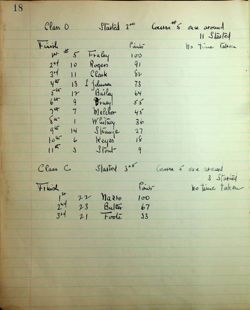 18
Class D Started 2nd Course #5 once around
11 Started
Finish Points No Time Taken
1st # 5 Fraley 100
2nd 10 Rogers 91
3rd 11 Clark 82
4th 13 Johnson 73
5th 12 Bailey 64
6th 9 55
7th 7 Melcher 45
8th 1 Whitney 36
9th 14 27
10th 6 Keyes 18
11th 3 Stout 9
Class C Started 3rd Course 5 once around
3 Started
Finish Points No Time Taken
1st 22 100
2nd 23 Butler 67
3rd 21 Foote 33